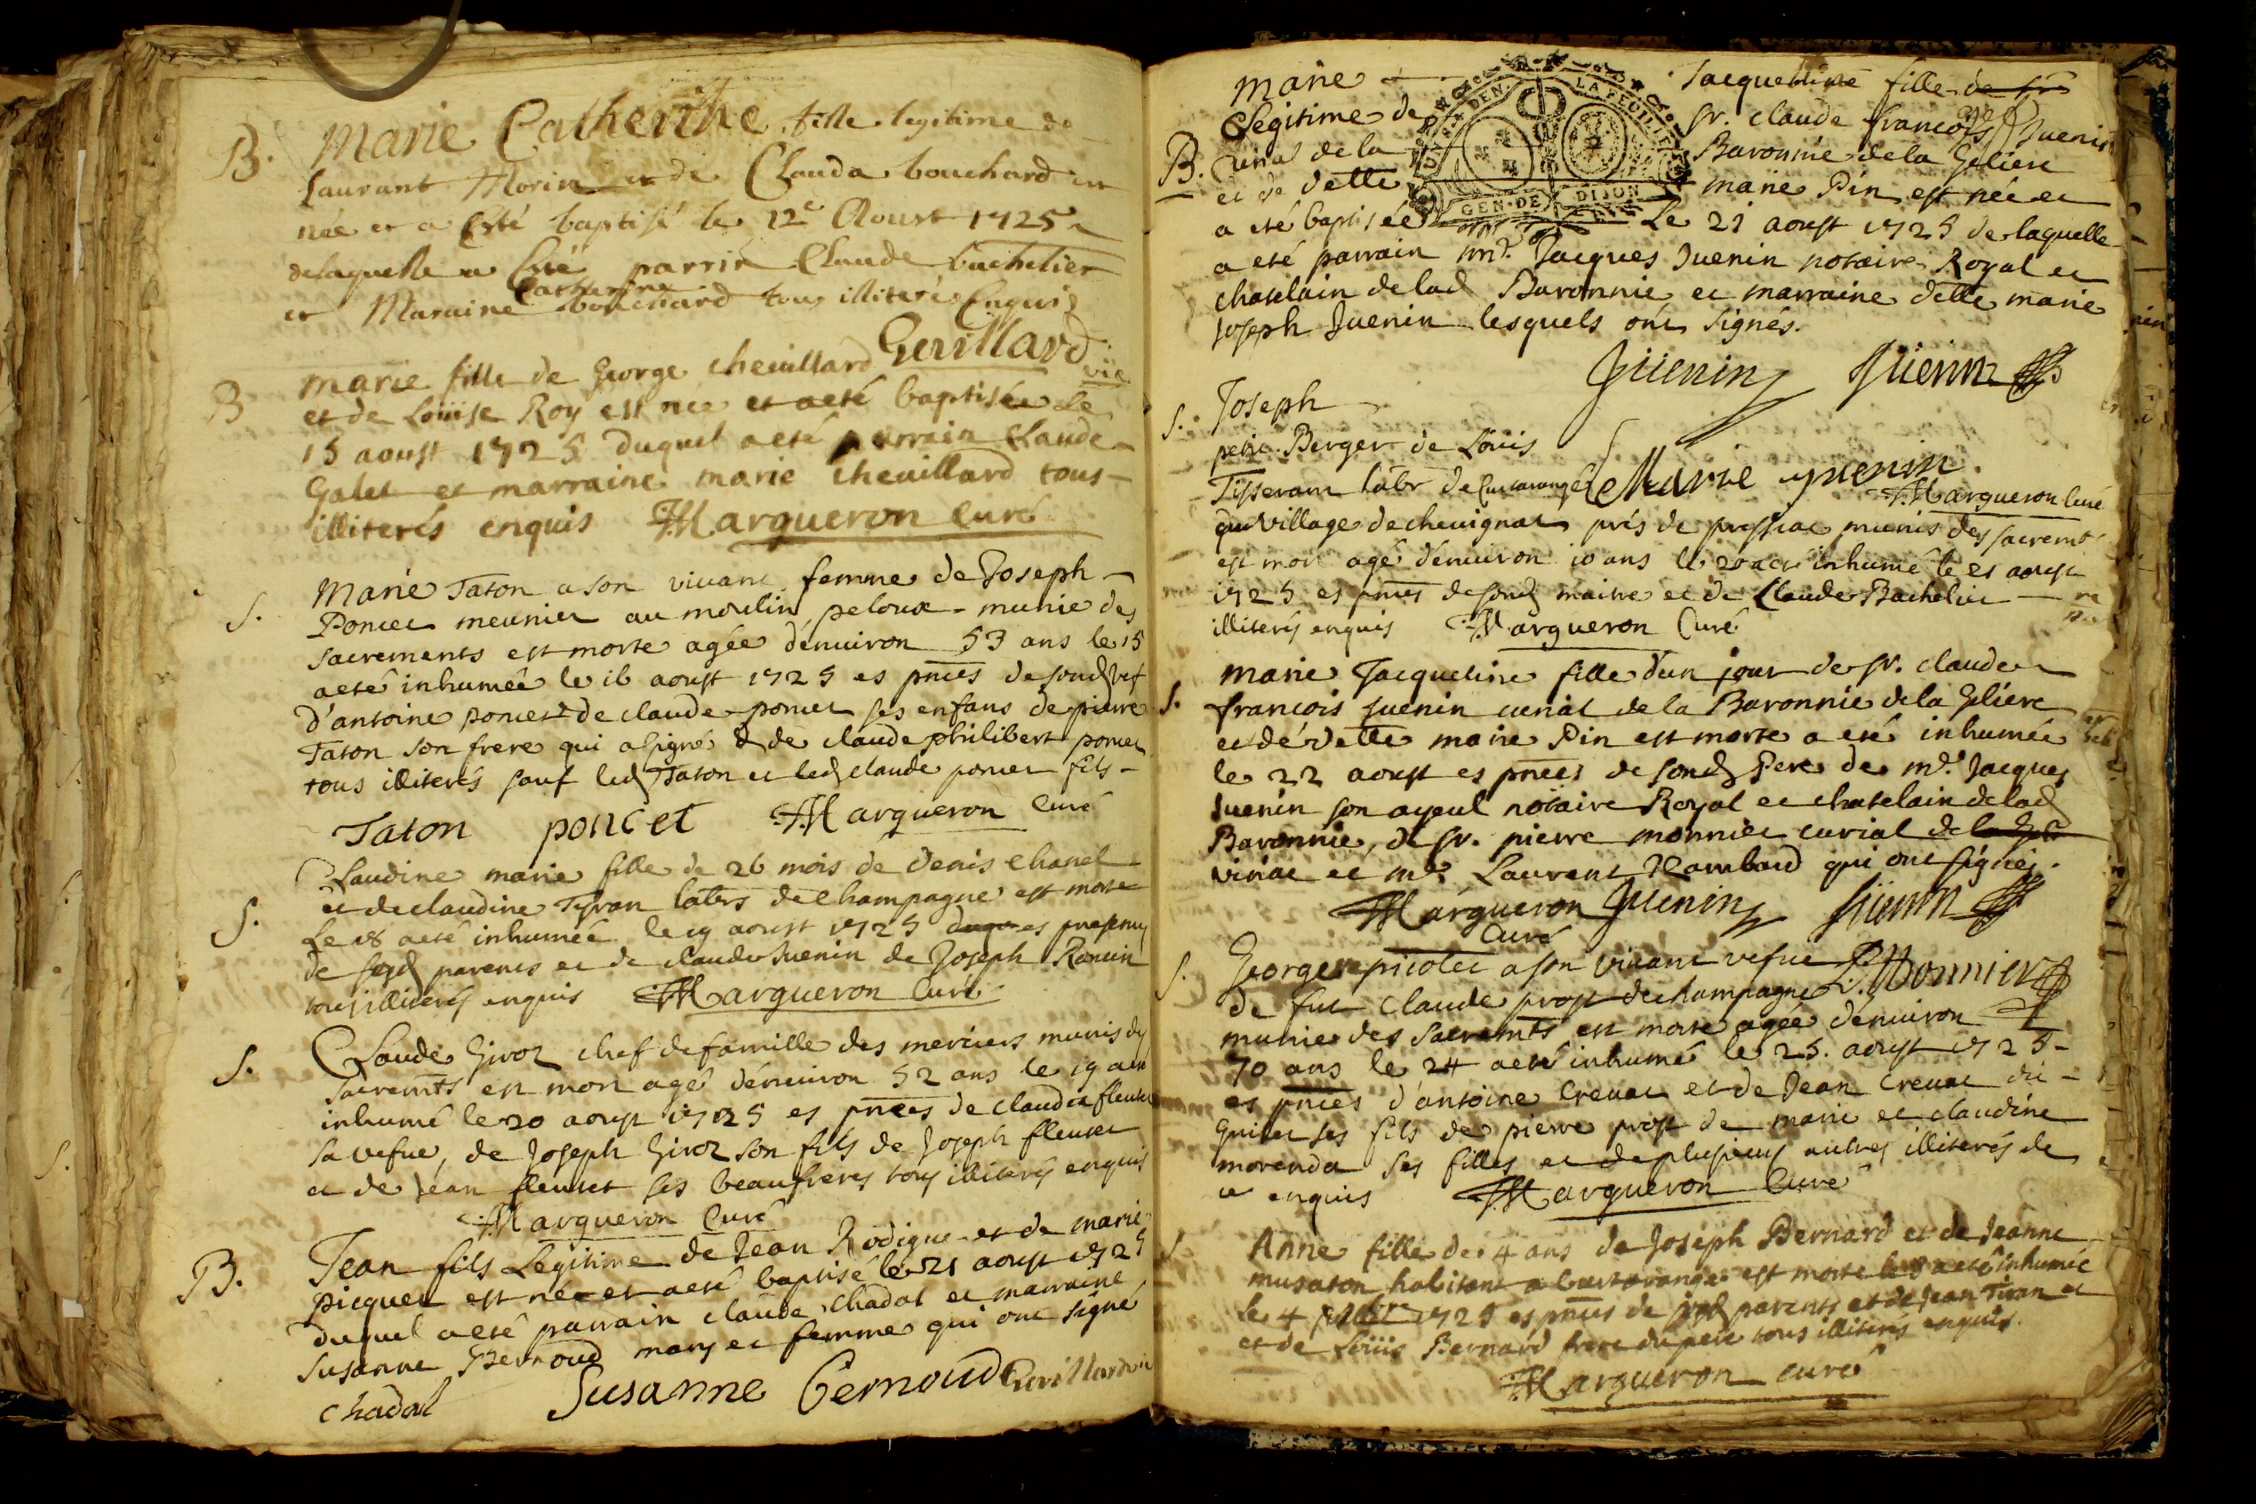 B. Marie Catherine fille legitime de
Laurant Morin et de Clauda bouchard est
née et a Esté baptisé le 12e Aoust 1725
de laquelle a Esté parrin Claude bachelier
et Maraine Catherine bouchard tous illiterés Enquis
Gerillard vic
B marie fille de George chevillard
et de Loüise Roy est née et a eté baptisée Le
15 aoust 1725 duquel a eté parrain Claude
Galet et marraine marie chevillard tous
illiterés enquis Margueron Curé
S. Marie Taton a son vivant femme de Joseph
Poncet meunier au moulin peloux munie des
sacrements est morte agée d'environ 53 ans le 15
a eté inhumée le 16 aoust 1725 es pnces de sond vef
d'antoine poncet de claude poncet ses enfans de pierre
Taton son frere qui a signé & de claude philibert poncet
tous illiterés sauf led Taton et led claude poncet fils
Taton poncet Margueron Curé
S. Claudine marie fille de 26 mois de Denis Chanel
et de claudine Tyran labrs de Champagne est morte
Le 18 a eté inhumée le 19 aoust 1725 es
de sesd parents et de claude Juenin de Joseph Roncin
tous illiterés enquis Margueron Curé
S. Claude Giroz chef de famille des merciers munis des
sacremts est mort agé d'environ 52 ans le 19 a eté
inhumé le 20 aoust 1725 es pnces de claudia fleutet
sa vefue, de Joseph Giroz son fils de Joseph fleutet
et de Jean fleutet ses beaufreres tous illiterés enquis
Margueron Curé
B. Jean fils Legitime de Jean Rodigue et de marie
picquet est né et a eté baptisé le 21 aoust 1725
duquel a eté parrain claude chadal et marraine
Susanne Bernoud mary et femme qui ont signé
chadal Susanne Bernoud Gerillard vic
Marie Jacqueline fille de sr
B. Legitime de sr. claude francois Juenin
Curial de la Baronnie de la Geliere
et de dette marie Pin est née et
a eté baptisée Le 21 aoust 1725 de laquelle
GEN. DE DIJON
LA FEUILLE
a eté parrain mr. Jacques Juenin notaire Royal et
chatelain de lad Baronnie et marraine delle marie
Joseph Juenin lesquels ont signés.
Juenin Juenin
S. Joseph
petit Berger de Loüis
Tisserant labr de Curtarange Marie Juenin
Margueron Curé
du village de chevignat prés de pressiat munis des sacremts
est mort agé d'environ 10 ans le 20 a eté inhumé le 21 aoust
1725 es pnces de sond maitre et de Claude Bachelier
illiterés enquis Margueron Curé
S. Marie Jacqueline fille d'un jour de sr. claude
francois Juenin curial de la Baronnie de la Geliere
et de dette marie Pin est morte a eté inhumée
le 22 aoust es pnces de sond Pere de mr. Jacques
Juenin son ayeul notaire Royal et chatelain de lad
Baronnie, de sr. pierre monnier curial de
viriat et mr. Laurent Rambaud qui ont signés.
Margueron Curé Juenin Juenin
P. Monnier
S. George picolet a son vivant vefue
de fut Claude prost de champagne
munie des sacremts est morte agée d'environ
70 ans le 24 a eté inhumé le 25. aoust 1725
es pnces d'antoine Crevat et de Jean Crevat dit
Guilet ses fils de pierre prost de marie et claudine
morendat ses filles et de plusieurs autres illiterés de
ce enquis Margueron Curé
S. Anne fille de 4 ans de Joseph Bernard et de Jeanne
musaton habitant a Curtarange est morte a eté inhumée
le 4 1725 es pnces de sesd parents et de Jean Tiran et
et de Loüis Bernard frere du pere tous illiterés enquis.
Margueron curé